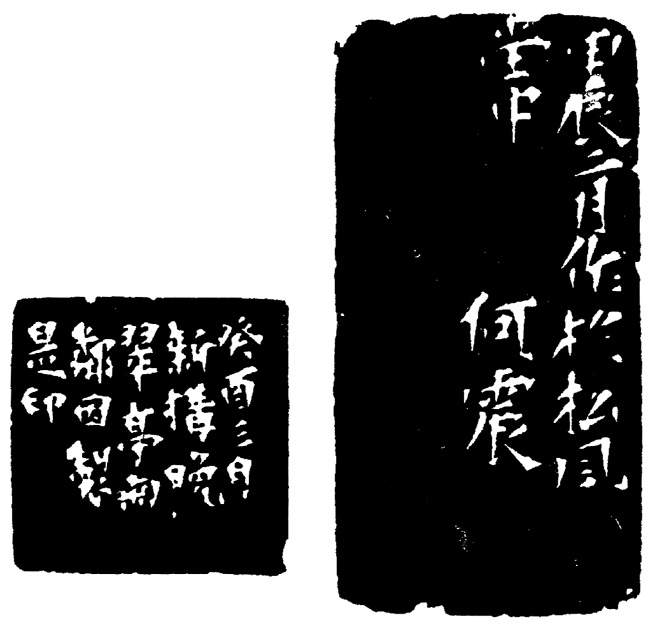 甲辰二月作於松風
堂中 何震
癸酉三月
新構晚
翠亭
鄰因製
是印